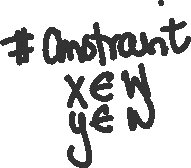 #Constraint
x∈W
y∈W